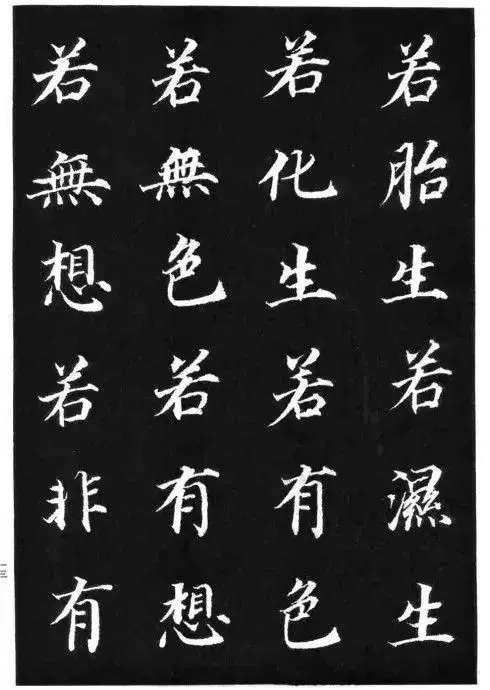 若胎生若濕生
若化生若有色
若無色若有想
若無想若非有
二三